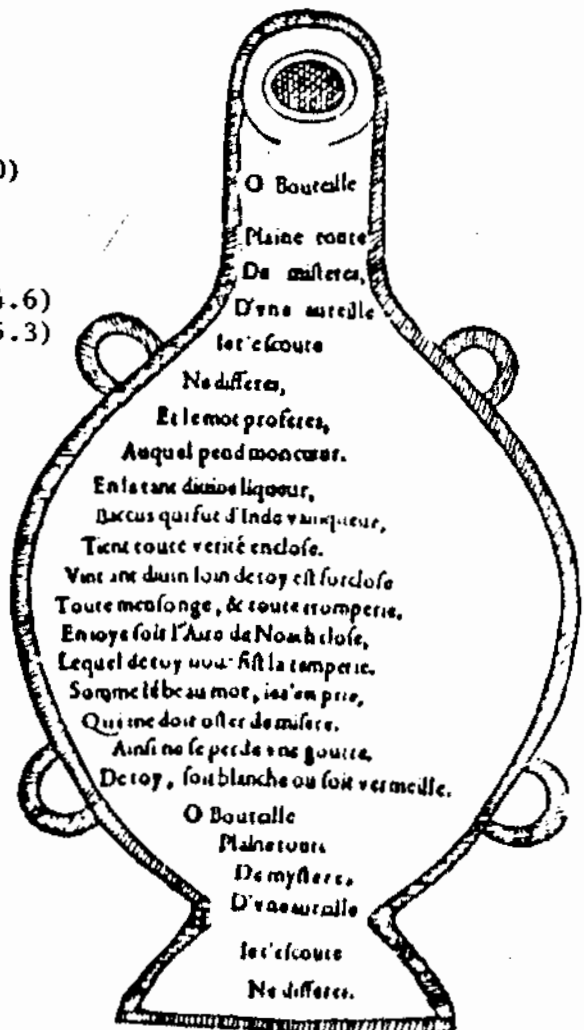 0)
4.6)
5.3)
O Bouteille
Plaine toute
De misteres,
D'vne aureille
Ie t'escoute
Ne differes,
Et le mot proferes,
Auquel pend mon cueur.
En la tant diuine liqueur,
Baccus qui fut d'Inde vainqueur,
Tient toute verité enclose.
Vin tant diuin loin de toy est forclose
Toute mensonge, & toute tromperie.
En ioye soit l'Aire de Noach close,
Lequel de toy nous fist la temperie.
Somme le beau mot, ie t'en prie,
Qui me doit oster de misere.
Ainsi ne se perde vne goutte,
De toy, soit blanche ou soit vermeille.
O Bouteille
Plaine toute
De mysteres
D'vne aureille
Ie t'escoute
Ne differes.